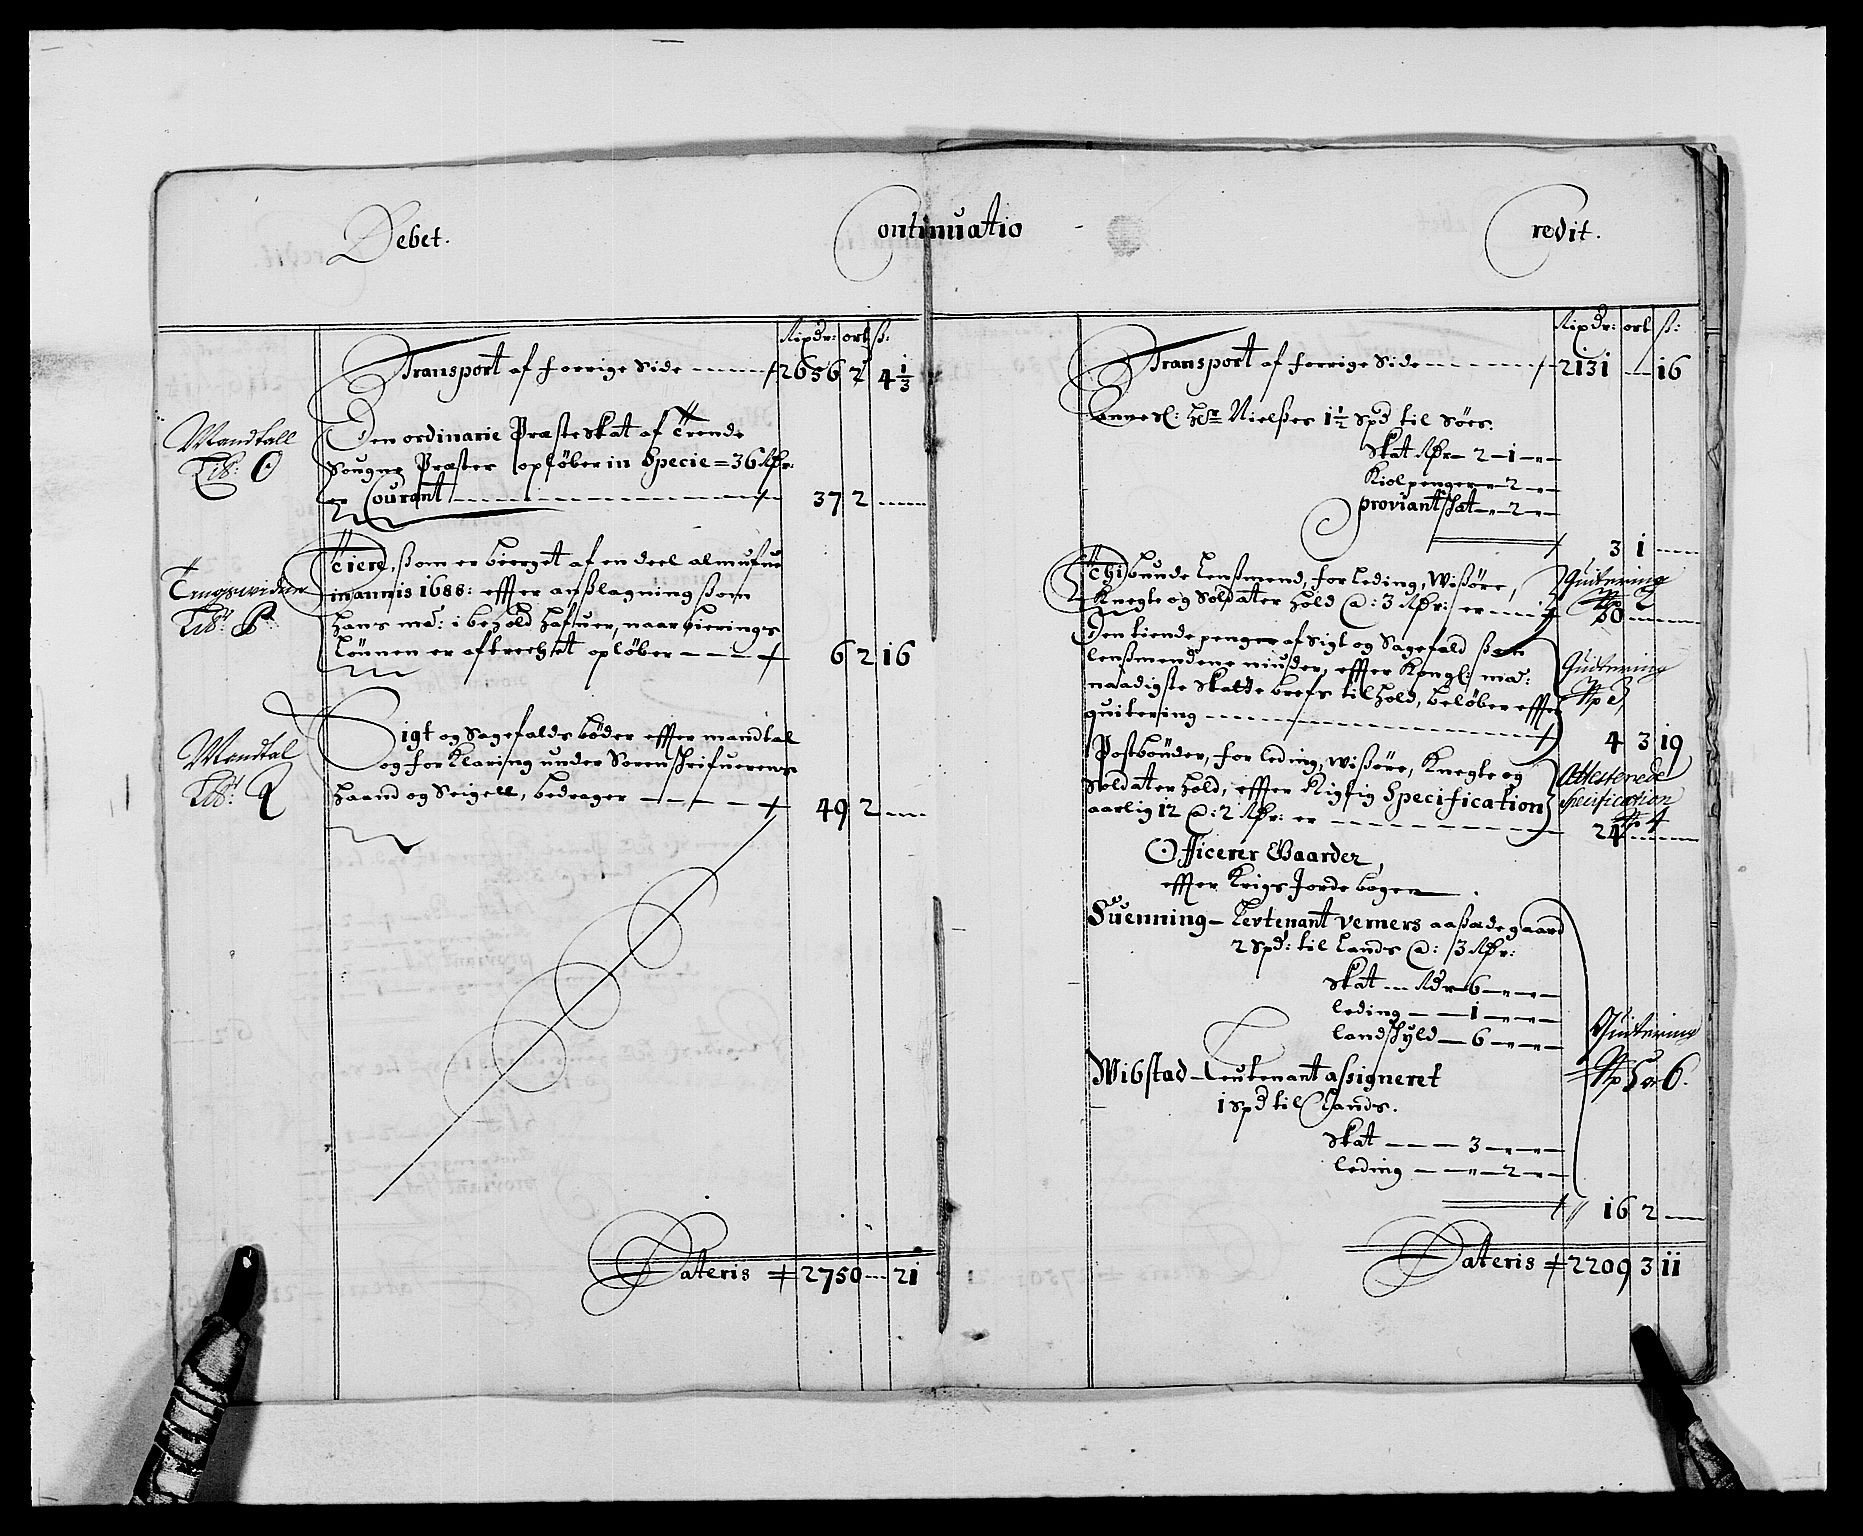 Debet. Continuatio Credit.
Rixdr: ort ß:
Transport af forrige Side 2656 2 4 1/3
Mandtall
Litr: O
Den ordinarie Præste Skat af Trende
Sougne Præster opløber in Specie = 36 Rdr:
er Courant 37 2
Tingsvidne
Litr: P
Tiere, ßom er bierget af en deel almufue
in annis 1688: effter anßlagning ßom
hans ma: i behold hafuer, naar bierings
Lønnen er aftrechet opløber 6 2 16
Mandtal
Litr: Q
Sigt og Sagefalds bøder effter mandtal
og forklaring under Sorenskrifuerens
haand og Seigell, bedrager 49 2
Lateris 2750 21
Rixdr: ort ß:
Transport af forrige Side 2131 16
Anne Sl: Hr Nielßes 1 1/2 Spd til Søes.
Skat Rdr 2 1
Kiolpenger 2
proviantskat 2
3 1
Quitering
No 2
bunde Lenßmend, for Leding, Wißøre,
Knegte og Soldater hold @: 3 Rdr: er 30
Den tiende penge af Sigt og Sagefald ßom
lenßmendene niuder, effter Kongl: ma:
naadigste Skatte brefs tilhold, beløber effter
quitering 4 3 19
Quitering
No 3
Postbønder, for leding, wißøre, Knegte og
Soldater hold, effter Rigtig Specification
aarlig 12 @: 2 Rdr: er 24
Attesterede
Specification
No 4
Officerer Gaarder,
effter Krigs Jordebogen
Suenning Levtenant Verners aaßædegaard
2 Spd: til Lands @: 3 Rdr:
Skat Rdr 6
leding 1
landskyld 6
Quitering
No 5 or 6.
Wibstad Leutenant assigneret
1 Spd til Lands.
Skat 3
leding 2
16 2
Lateris 2209 3 11